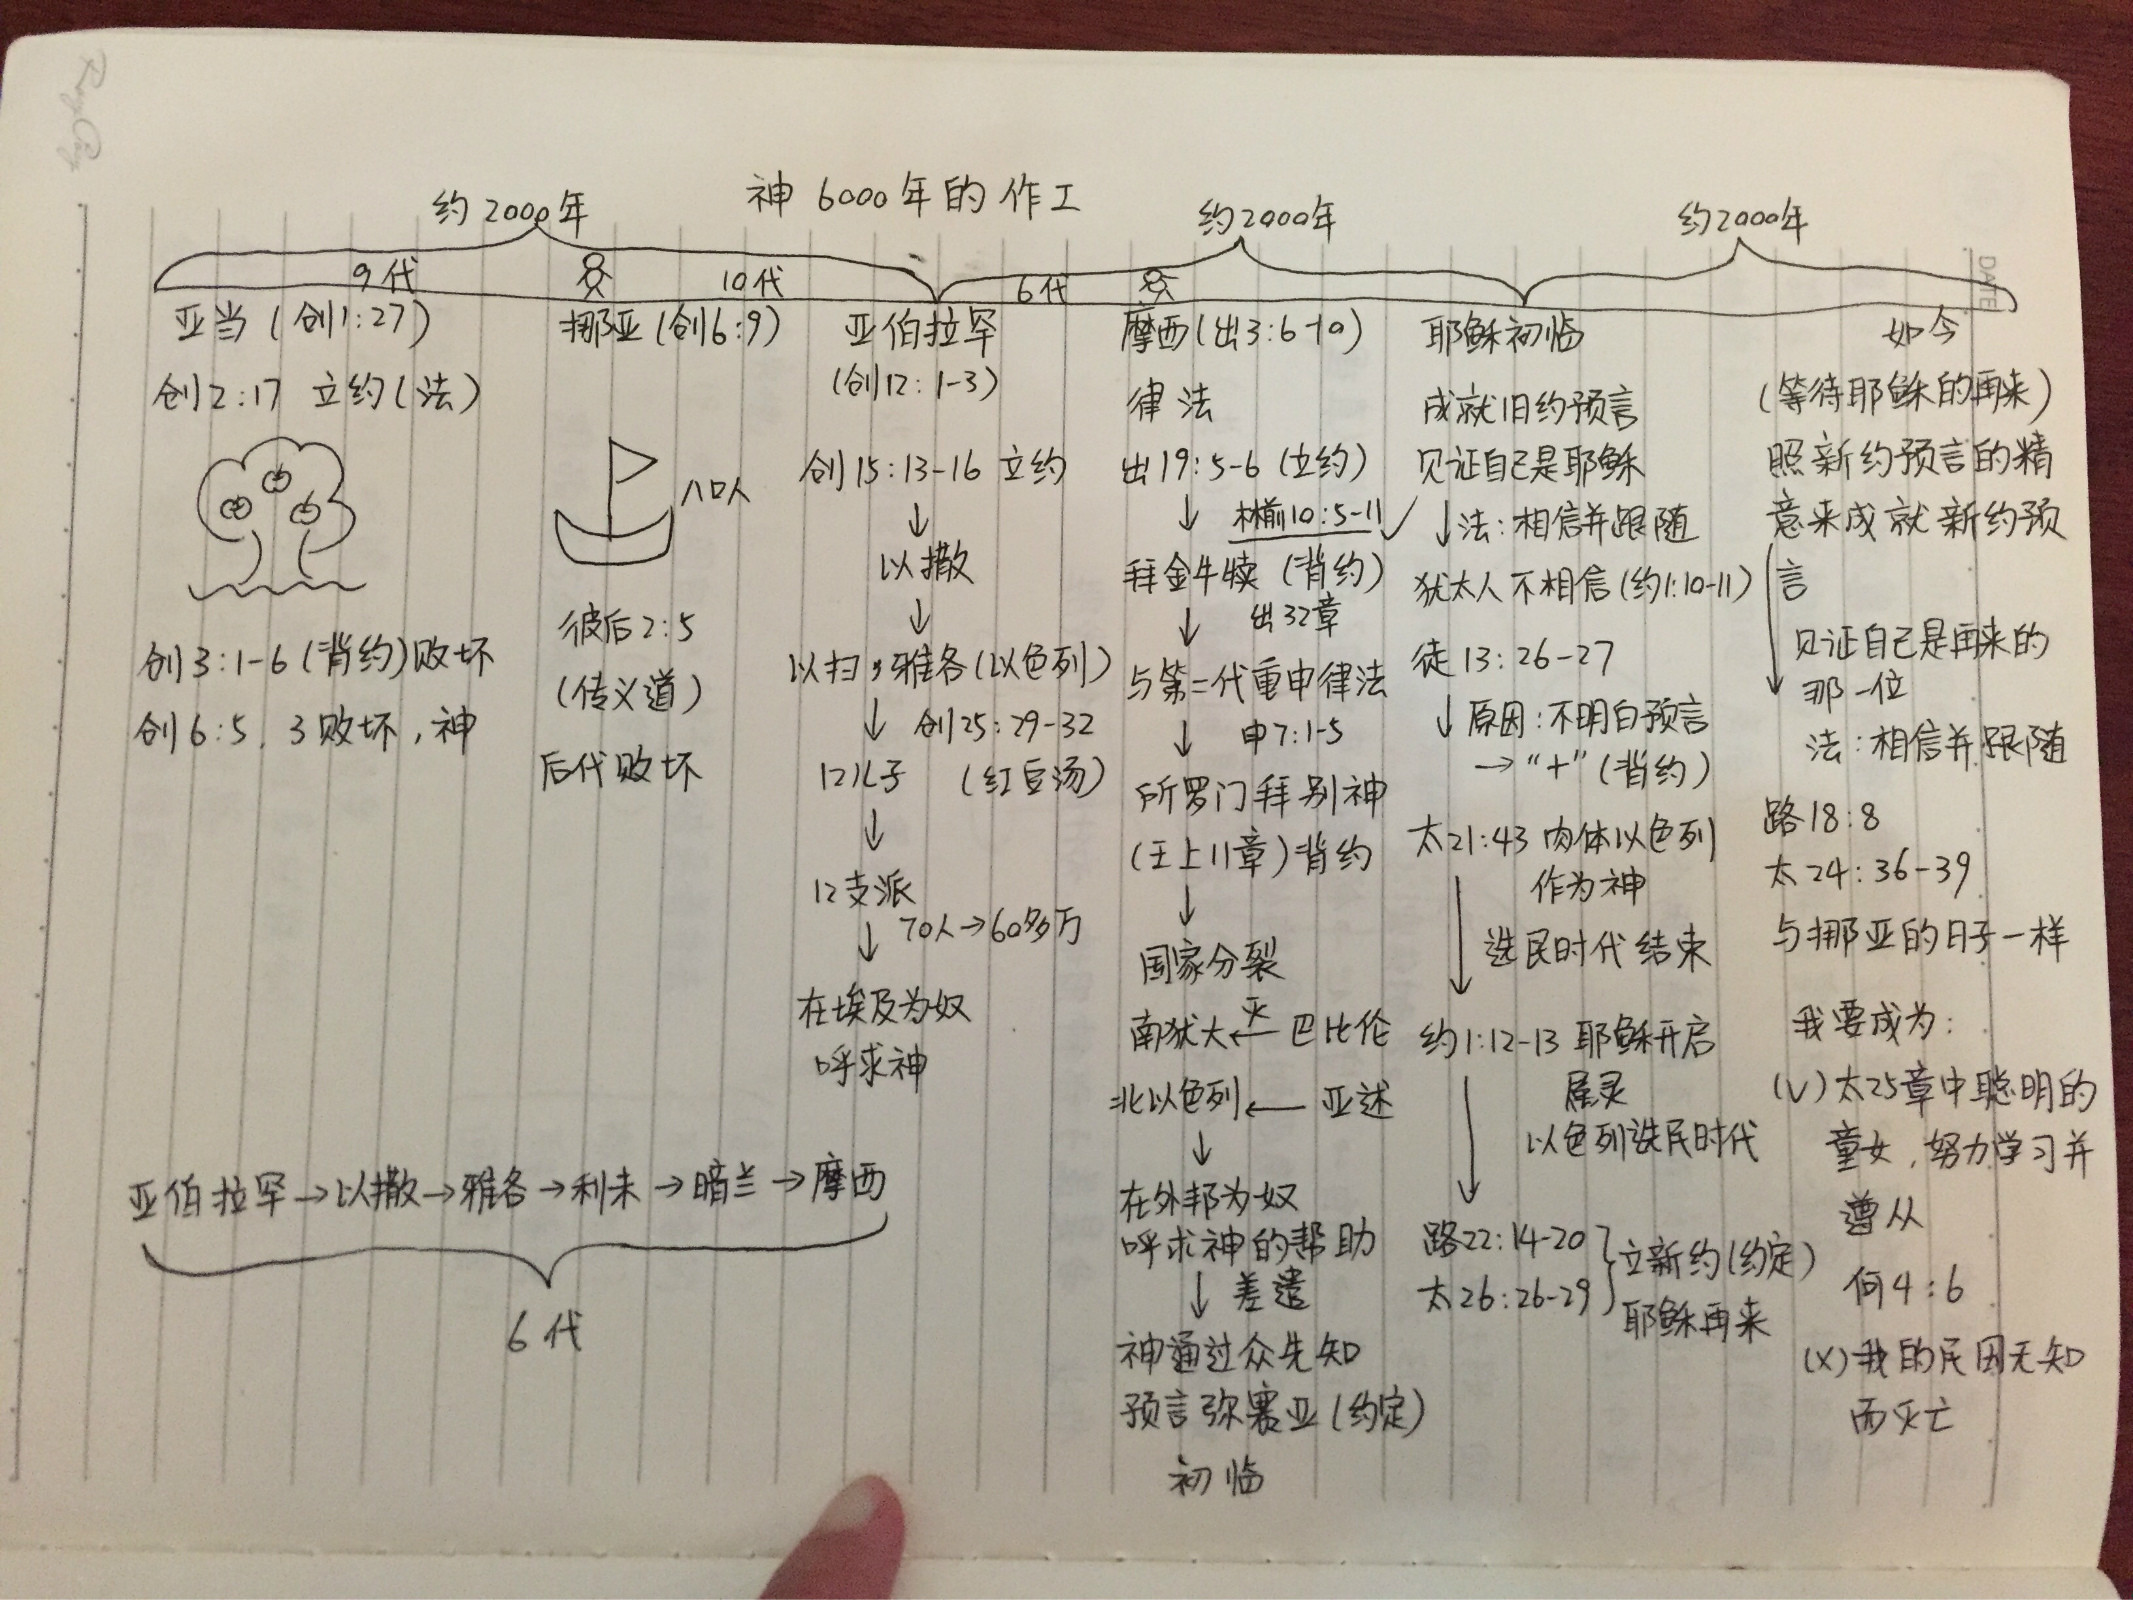 神6000年的作工
约2000年
约2000年
约2000年
9代
10代
6代
亚当(创1:27)
创2:17 立约(法)
创3:1-6(背约)败坏
创6:5,3败坏,神
挪亚(创6:9)
八口人
彼后2:5
(传义道)
后代败坏
亚伯拉罕
(创12:1-3)
创15:13-16 立约
↓
以撒
↓
以扫,雅各(以色列)
↓ 创25:29-32
12儿子 (红豆汤)
↓
12支派
↓ 70人→60多万
在埃及为奴
呼求神
亚伯拉罕→以撒→雅各→利未→暗兰→摩西
6代
摩西(出3:6-10)
律法
出19:5-6(立约)
↓ 林前10:5-11
拜金牛犊(背约)
↓ 出32章
与第二代重申律法
↓ 申7:1-5
所罗门拜别神
(王上11章)背约
↓
国家分裂
南犹大←灭巴比伦
北以色列←亚述
↓
在外邦为奴
呼求神的帮助
↓差遣
神通过众先知
预言弥赛亚(约定)
初临
耶稣初临
成就旧约预言
见证自己是耶稣
↓法:相信并跟随
犹太人不相信(约1:10-11)
徒13:26-27
↓原因:不明白预言
→"十"(背约)
太21:43 肉体以色列
作为神
选民时代结束
约1:12-13 耶稣开启
属灵
以色列选民时代
路22:14-20
太26:26-29
立新约(约定)
耶稣再来
如今
(等待耶稣的再来)
照新约预言的精
意来成就新约预
言
见证自己是再来的
那一位
法:相信并跟随
路18:8
太24:36-39
与挪亚的日子一样
我要成为:
(√)太25章中聪明的
童女,努力学习并
遵从
何4:6
(×)我的民因无知
而灭亡
DATE